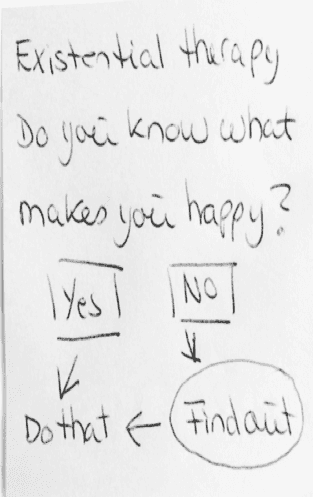 Existential therapy
Do you know what
makes you happy?
Yes NO
Do that ← Find out